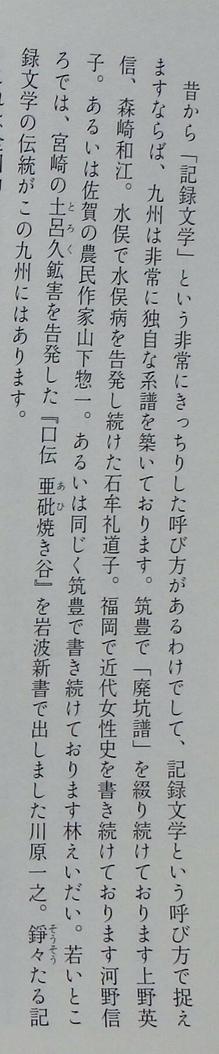 昔から「記録文学」という非常にきっちりした呼び方があるわけでして、記録文学という呼び方で捉え
ますならば、九州は非常に独自な系譜を築いております。筑豊で「廃坑譜」を綴り続けております上野英
信、森崎和江。水俣で水俣病を告発し続けた石牟礼道子。福岡で近代女性史を書き続けております河野信
子。あるいは佐賀の農民作家山下惣一。あるいは同じく筑豊で書き続けております林えいだい。若いとこ
ろでは、宮崎の土呂久鉱害を告発した『口伝 亜砒焼き谷』を岩波新書で出しました川原一之。錚々たる記
録文学の伝統がこの九州にはあります。